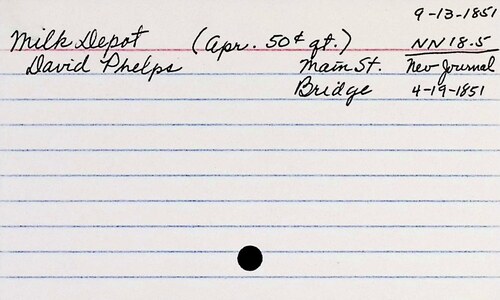 9-13-1851
Milk Depot (Apr. 50¢ qt.) NN18.5
David Phelps Main St. Nev Journal
Bridge 4-19-1851